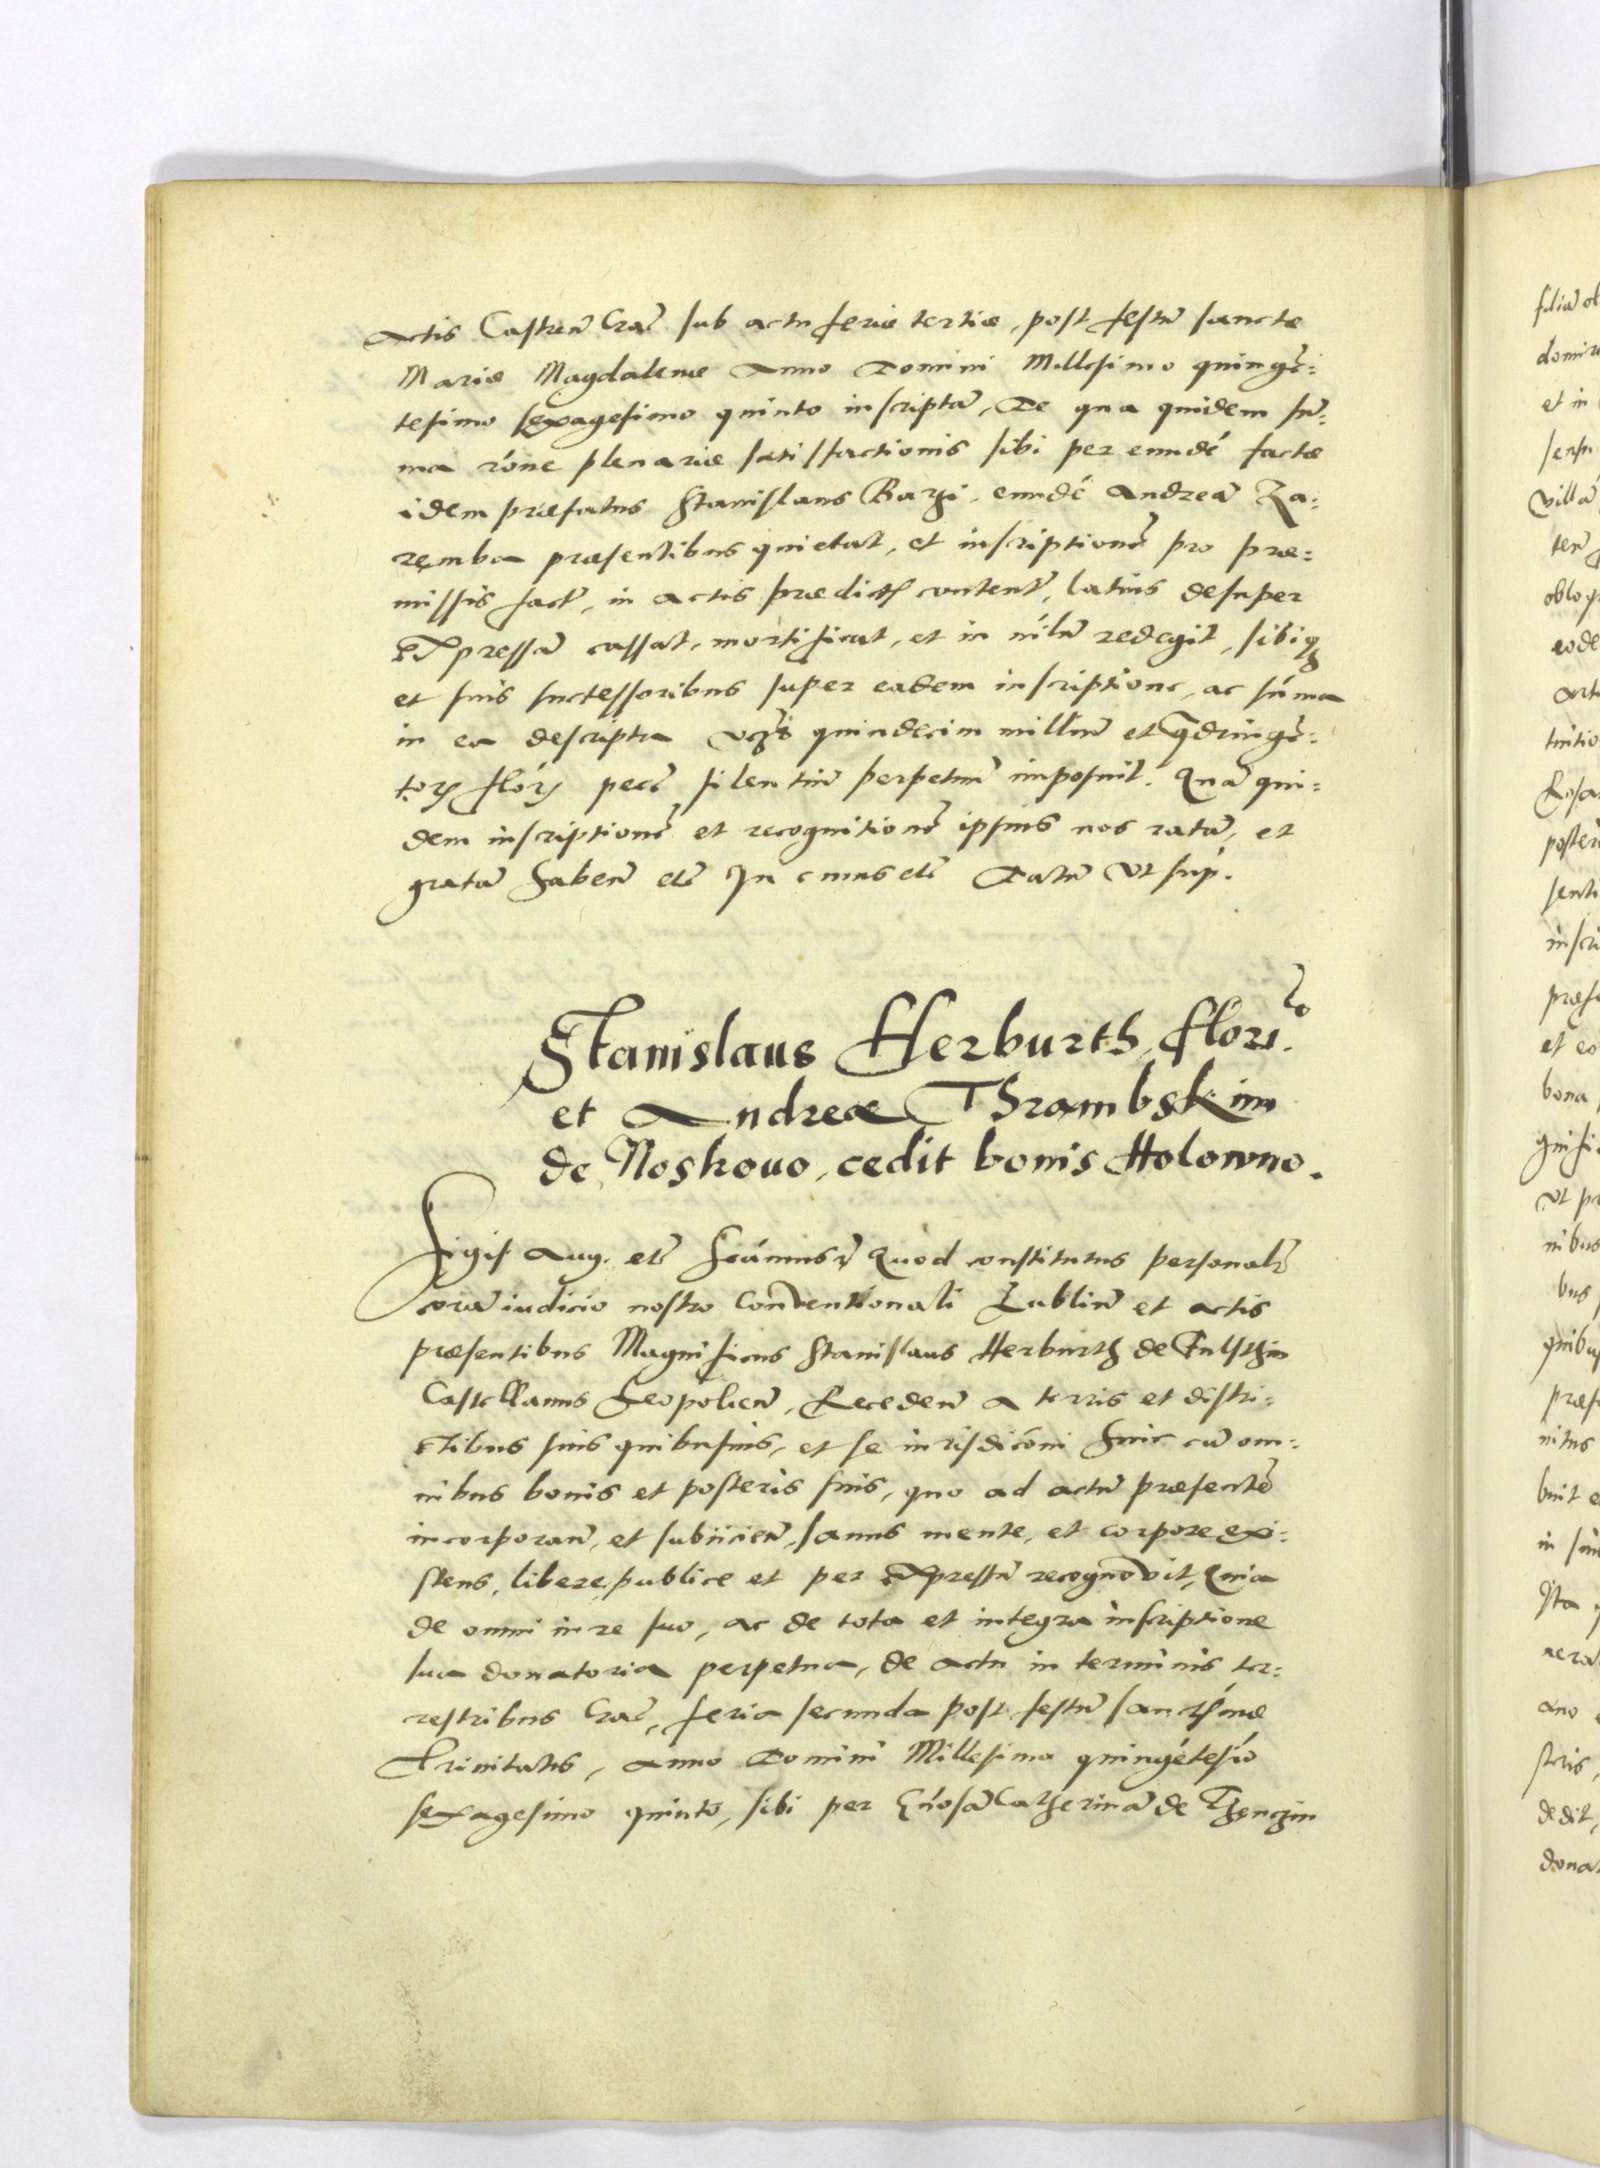 Actis Castren̄ Crac̄ sub actu feriæ tertiæ, post festū sanctæ
Mariæ Magdalenæ Anno Domini Millesimo quingē:
tesimo sexagesimo quinto inscriptā, De qua quidem sū:
ma rōne plenariæ satisfactionis sibi per eundē factæ
idem præfatus Stanislaus Barzi eundē Andreā Za:
ręmba præsentibus quietat, et inscriptionē pro præ:
missis fact̄, in actis prædict̄ content̄, latius desuper
expressā cassat, mortificat, et in nīlū redegit, sibiq₃
et suis successoribus super eadem inscriptione, ac sūma
in ea descripta vcz quindecim milliū et qdringē:
torꝝ flōrꝝ pecc̄ silentiū perpetuū imposuit. Quā qui:
dem inscriptionē et recognitionē ipsius nos ratā, et
gratā haben̄ etc̄ In cuius etc̄ Datū vt sup.
Stanislaus Herburth, flori.
et Andreæ Thrambskim
de Noskouo, cedit bonis Holowno.
Sigis Aug. etc̄ Scīmus Quod constitutus personalr̄
corā iudicio nostro Conuentionali Lublin̄ et actis
præsentibus Magnificus Stanislaus Herburth de Fulsthin
Castellanus Leopolien̄, Receden̄ a terris et distri:
ctibus suis quibusuis, et se iurisdicōni huic cū om:
nibus bonis et posteris suis, quo ad actū præsentē
incorporan̄, et subiicien̄, sanus mente, et corpore exi:
stens, libere, publice et per expressū recognouit, Quia
de omni iure suo, ac de tota et integra inscriptione
sua donatoria perpetua, de actu in terminis ter:
restribus Crac̄, feria secunda post festū sanctissimæ
Trinitatis, Anno Domini Millesimo quingētesīo
sexagesimo quinto, sibi per Gn̄osā Catherinā de Thęnczin